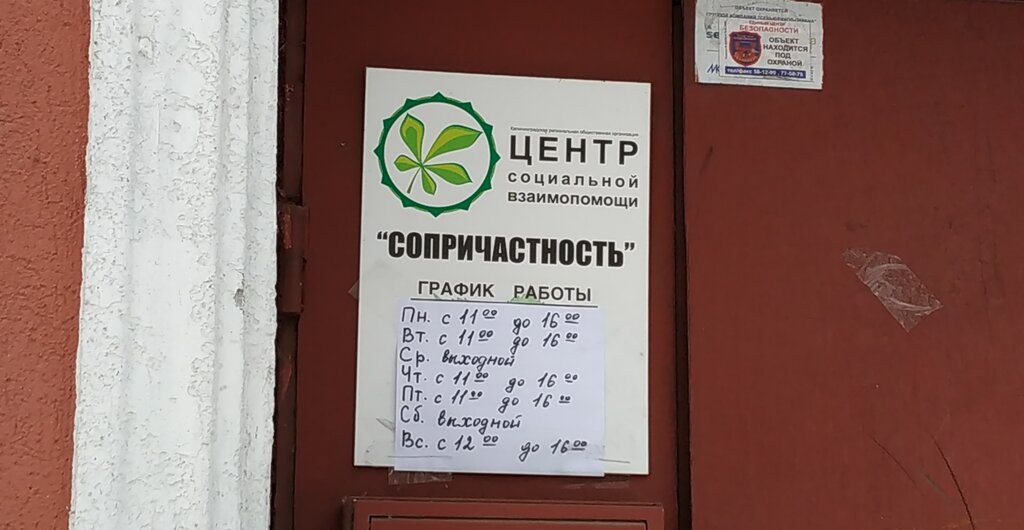 Калининградская региональная общественная организация
ЦЕНТР
СОЦИАЛЬНОЙ
ВЗАИМОПОМОЩИ
"СОПРИЧАСТНОСТЬ"
ГРАФИК РАБОТЫ
Пн. с 11⁰⁰ до 16⁰⁰
Вт. с 11⁰⁰ до 16⁰⁰
Ср. выходной
Чт. с 11⁰⁰ до 16⁰⁰
Пт. с 11⁰⁰ до 16⁰⁰
Сб. выходной
Вс. с 12⁰⁰ до 16⁰⁰
ОБЪЕКТ ОХРАНЯЕТСЯ
ЕДИНЫЙ ЦЕНТР
БЕЗОПАСНОСТИ
ОБЪЕКТ
НАХОДИТСЯ
ПОД
ОХРАНОЙ